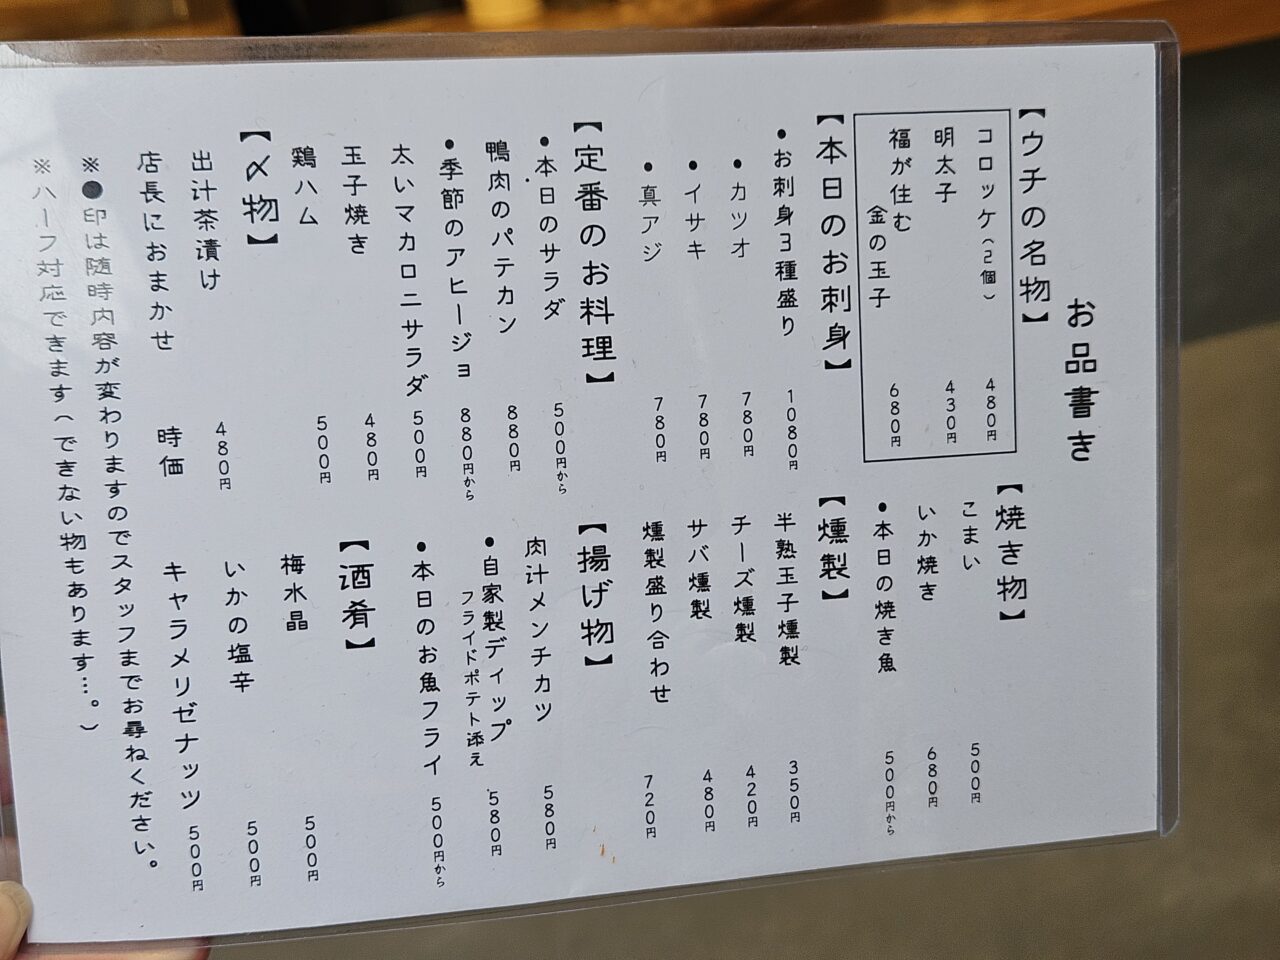 お品書き
【ウチの名物】
コロッケ(2個) 480円
明太子 430円
福が住む
金の玉子 680円
【本日のお刺身】
●お刺身3種盛り 1080円
●カツオ 780円
●イサキ 780円
●真アジ 780円
【定番のお料理】
●本日のサラダ 500円から
鴨肉のパテカン 880円
●季節のアヒージョ 880円から
太いマカロニサラダ 500円
玉子焼き 480円
鶏ハム 500円
【〆物】
出汁茶漬け 480円
店長におまかせ 時価
【焼き物】
こまい 500円
いか焼き 680円
●本日の焼き魚 500円から
【燻製】
半熟玉子燻製 350円
チーズ燻製 420円
サバ燻製 480円
燻製盛り合わせ 720円
【揚げ物】
肉汁メンチカツ 580円
●自家製ディップ
フライドポテト添え 580円
●本日のお魚フライ 500円から
【酒肴】
梅水晶 500円
いかの塩辛 500円
キャラメリゼナッツ 500円
※●印は随時内容が変わりますのでスタッフまでお尋ねください。
※ハーフ対応できます(できない物もあります…。)